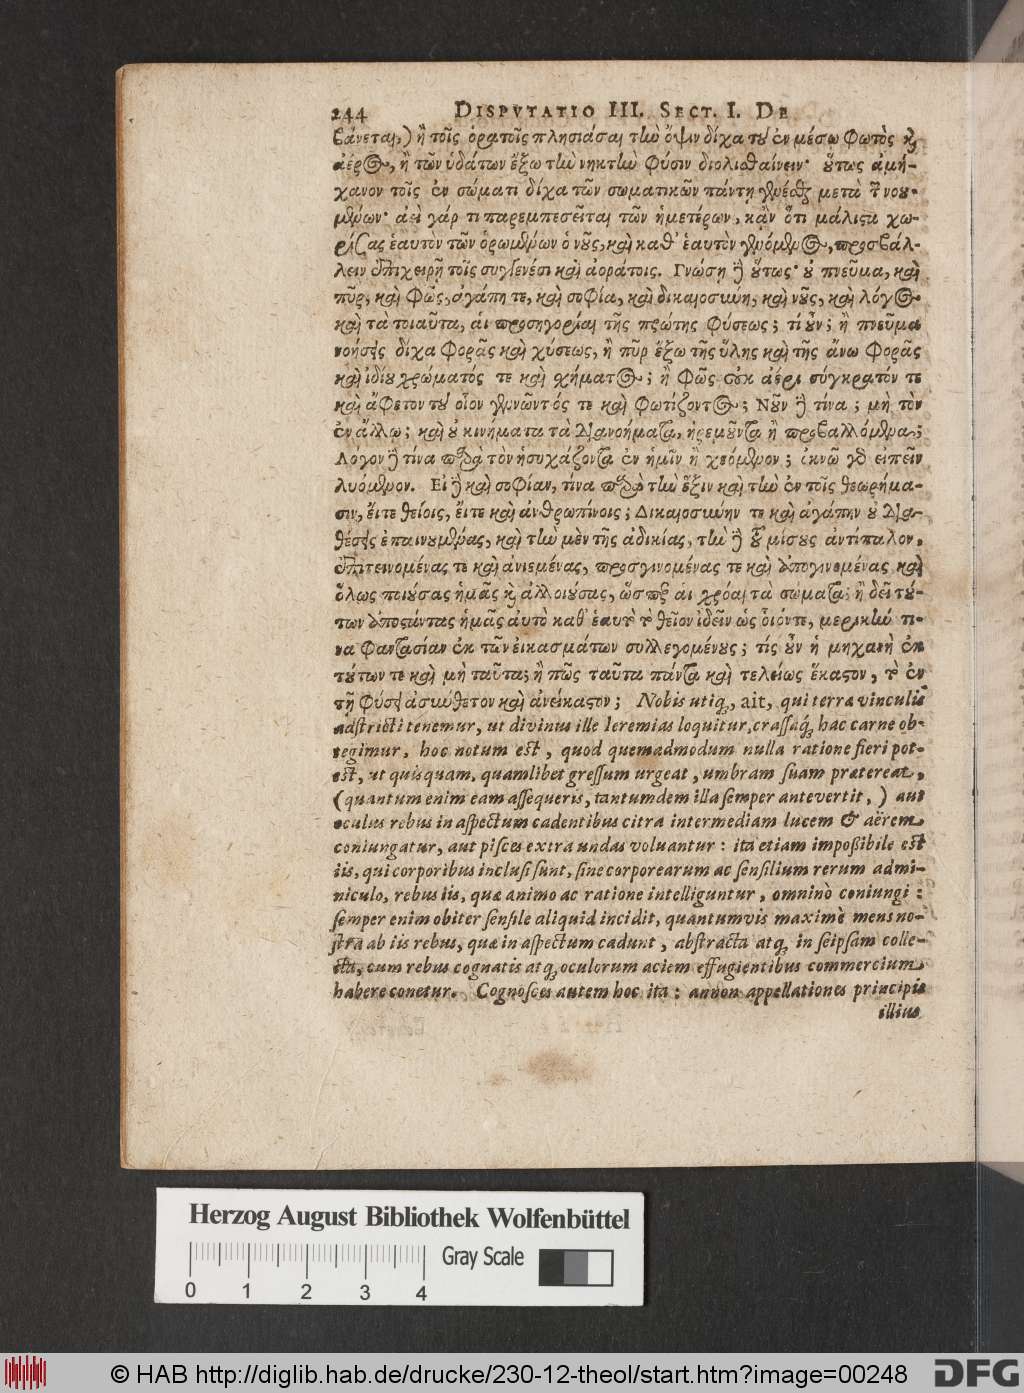 244 DISPVTATIO III. SECT. I. DE
βάνεται,) ἢ τοῖς ὁρατοῖς πλησιάσαι τὴν ὄψιν δίχα τοῦ ἐν μέσῳ φωτὸς καὶ
ἀέρος, ἢ τῶν ὑδάτων ἔξω τὴν νηκτὴν φύσιν διολισθαίνειν· οὕτως ἀμή-
χανον τοῖς ἐν σώματι δίχα τῶν σωματικῶν πάντη γενέσθαι μετὰ τῶν νοου-
μένων· ἀεὶ γάρ τι παρεμπεσεῖται τῶν ἡμετέρων, κἂν ὅτι μάλιστα χω-
ρίσας ἑαυτὸν τῶν ὁρωμένων ὁ νοῦς, καὶ καθ' ἑαυτὸν γενόμενος, προσβάλ-
λειν ἐπιχειρῇ τοῖς συγγενέσι καὶ ἀοράτοις. Γνώσῃ δὲ οὕτως· οὐ πνεῦμα, καὶ
πῦρ, καὶ φῶς, ἀγάπη τε, καὶ σοφία, καὶ δικαιοσύνη, καὶ νοῦς, καὶ λόγος
καὶ τὰ τοιαῦτα, αἱ προσηγορίαι τῆς πρώτης φύσεως; τί οὖν; ἢ πνεῦμα
νοήσεις δίχα φορᾶς καὶ χύσεως, ἢ πῦρ ἔξω τῆς ὕλης καὶ τῆς ἄνω φορᾶς
καὶ ἰδίου χρώματός τε καὶ σχήματος; ἢ φῶς οὐκ ἀέρι σύγκρατόν τε
καὶ ἄφετον τοῦ οἷον γεννῶντός τε καὶ φωτίζοντος; Νοῦν δὲ τίνα; μὴ τὸν
ἐν ἄλλῳ; καὶ οὐ κινήματα τὰ διανοήματα, ἠρεμοῦντα ἢ προβαλλόμενα;
Λόγον δὲ τίνα παρὰ τὸν ἡσυχάζοντα ἐν ἡμῖν ἢ χεόμενον; ὀκνῶ γὰρ εἰπεῖν
λυόμενον. Εἰ δὲ καὶ σοφίαν, τίνα παρὰ τὴν ἕξιν καὶ τὴν ἐν τοῖς θεωρήμα-
σιν, εἴτε θείοις, εἴτε καὶ ἀνθρωπίνοις; Δικαιοσύνην τε καὶ ἀγάπην οὐ δια-
θέσεις ἐπαινουμένας, καὶ τὴν μὲν τῆς ἀδικίας, τὴν δὲ τοῦ μίσους ἀντίπαλον,
ἐπιτεινομένας τε καὶ ἀνιεμένας, προσγινομένας τε καὶ ἀπογινομένας καὶ
ὅλως ποιούσας ἡμᾶς καὶ ἀλλοιούσας, ὥσπερ αἱ χρόαι τὰ σώματα; ἢ δεῖ τού-
των ἀποστάντας ἡμᾶς αὐτὸ καθ' ἑαυτὸ τὸ θεῖον ἰδεῖν ὡς οἷόντε, μερικήν τι-
να φαντασίαν ἐκ τῶν εἰκασμάτων συλλεγομένους; τίς οὖν ἡ μηχανὴ ἐκ
τούτων τε καὶ μὴ ταῦτα; ἢ πῶς ταῦτα πάντα καὶ τελείως ἕκαστον, τὸ ἓν
τῇ φύσει ἀσύνθετον καὶ ἀνείκαστον; Nobis utiq;, ait, qui terræ vinculis
adstricti tenemur, ut divinus ille Ieremias loquitur, crassaq́; hac carne ob-
tegimur, hoc notum est, quod quemadmodum nulla ratione fieri pot-
est, ut quisquam, quamlibet gressum urgeat, umbram suam prætereat,
(quantum enim eam assequeris, tantumdem illa semper antevertit,) aut
oculus rebus in aspectum cadentibus citra intermediam lucem & aërem
coniungatur, aut pisces extra undas voluantur: ita etiam impoßibile est
iis, qui corporibus inclusi sunt, sine corporearum ac sensilium rerum admi-
niculo, rebus iis, quæ animo ac ratione intelliguntur, omninò coniungi:
semper enim obiter sensile aliquid incidit, quantumvis maximè mens no-
stra ab iis rebus, quæ in aspectum cadunt, abstracta atq; in seipsam colle-
cta, cum rebus cognatis atq; oculorum aciem effugientibus commercium
habere conetur. Cognosces autem hoc ita: annon appellationes principis
illius
Herzog August Bibliothek Wolfenbüttel
Gray Scale
0 1 2 3 4
© HAB http://diglib.hab.de/drucke/230-12-theol/start.htm?image=00248
DFG